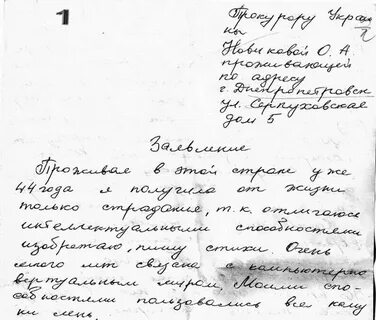 1
Прокурору Украи
ны
Новиковой О. А
проживающей
по адресу
г. Днепропетровск
ул. Серпуховская
дом 5
Заявление
Проживая в этой стране уже
44 года я получила от жизни
только страдание, т. к. отличаюсь
интеллектуальными способностями
изобретаю, пишу стихи. Очень
много лет связана с компьютерно
вертуальным миром, Моими спо-
собностями пользовались все кому
ни лень.